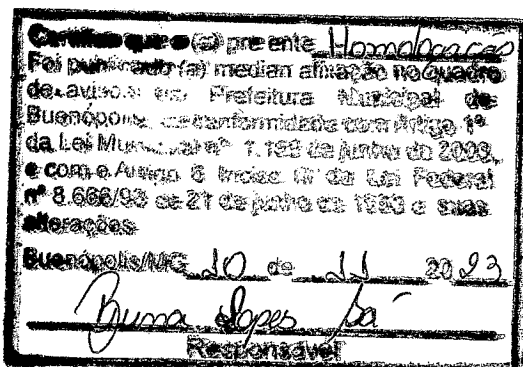 Certifico que o (a) presente Homologação
Foi publicado (a) mediante afixação no quadro
de avisos da Prefeitura Municipal de
Buenópolis, de conformidade com Artigo 1º
da Lei Municipal nº 1.199 de junho de 2003,
e com o Artigo 6 Inciso da Lei Federal
nº 8.666/93 de 21 de junho de 1993 e suas
alterações
Buenópolis/MG 10 de 11 20 23
Bruna Lopes Sá
Responsável